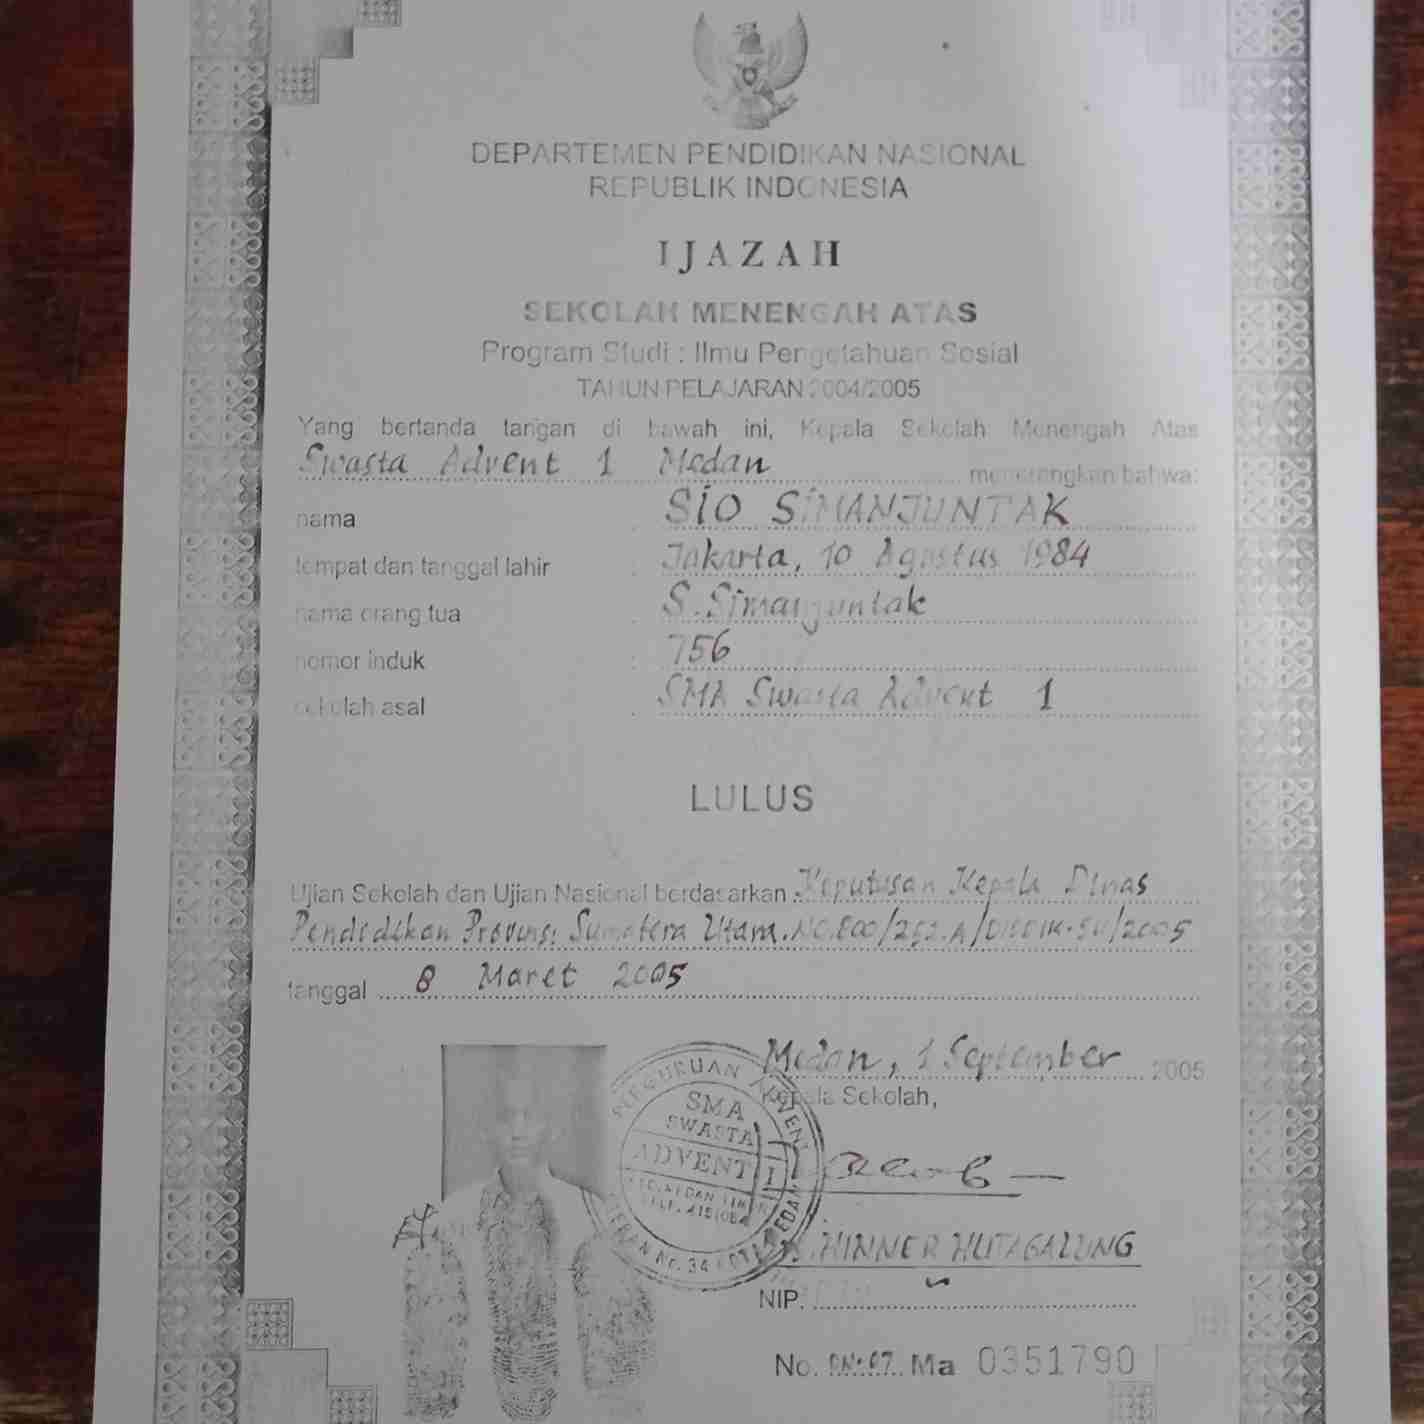 DEPARTEMEN PENDIDIKAN NASIONAL
REPUBLIK INDONESIA
IJAZAH
SEKOLAH MENENGAH ATAS
Program Studi : Ilmu Pengetahuan Sosial
TAHUN PELAJARAN 2004/2005
Yang bertanda tangan di bawah ini, Kepala Sekolah Menengah Atas
Swasta Advent 1 Medan menerangkan bahwa:
nama : SIO SIMANJUNTAK
tempat dan tanggal lahir : Jakarta, 10 Agustus 1984
nama orang tua : S. Simanjuntak
nomor induk : 756
sekolah asal : SMA Swasta Advent 1
LULUS
Ujian Sekolah dan Ujian Nasional berdasarkan Keputusan Kepala Dinas
Pendidikan Provinsi Sumatera Utara. NO.800/252.A/DISDIK-SU/2005
tanggal 8 Maret 2005
Medan, 1 September 2005
Kepala Sekolah,
PERGURUAN ADVENT
SMA
SWASTA
ADVENT 1
No. 34
HINNER HUTAGALUNG
NIP.
No. DN-07 Ma 0351790